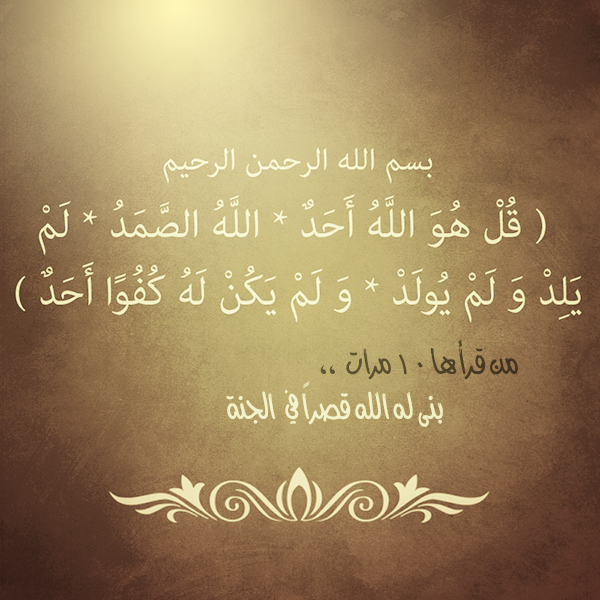 بسم الله الرحمن الرحيم
( قُلْ هُوَ اللَّهُ أَحَدٌ * اللَّهُ الصَّمَدُ * لَمْ
يَلِدْ وَ لَمْ يُولَدْ * وَ لَمْ يَكُنْ لَهُ كُفُوًا أَحَدٌ )
من قرأها ١٠ مرات ،،
بنى له الله قصراً في الجنة